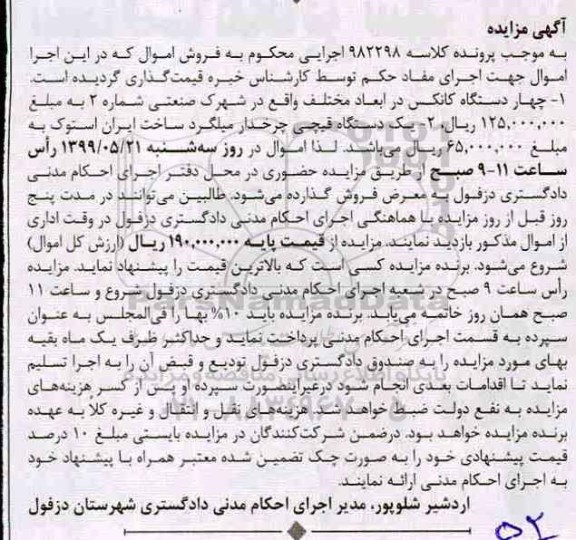 آگهی مزایده
به موجب پرونده کلاسه ۹۸۲۲۹۸ اجرایی محکوم به فروش اموال که در این اجرا
اموال جهت اجرای مفاد حکم توسط کارشناس خبره قیمت‌گذاری گردیده است.
۱- چهار دستگاه کانکس در ابعاد مختلف واقع در شهرک صنعتی شماره ۲ به مبلغ
۱۲۵,۰۰۰,۰۰۰ ریال ۲- یک دستگاه قیچی چرخدار میلگرد ساخت ایران استوک به
مبلغ ۶۵,۰۰۰,۰۰۰ ریال می‌باشند. لذا اموال در روز سه‌شنبه ۱۳۹۹/۰۵/۲۱ رأس
ساعت ۱۱-۹ صبح از طریق مزایده حضوری در محل دفتر اجرای احکام مدنی
دادگستری دزفول به معرض فروش گذارده می‌شود. طالبین می‌توانند در مدت پنج
روز قبل از روز مزایده با هماهنگی اجرای احکام مدنی دادگستری دزفول در وقت اداری
از اموال مذکور بازدید نمایند. مزایده از قیمت پایه ۱۹۰,۰۰۰,۰۰۰ ریال (ارزش کل اموال)
شروع می‌شود. برنده مزایده کسی است که بالاترین قیمت را پیشنهاد نماید. مزایده
رأس ساعت ۹ صبح در شعبه اجرای احکام مدنی دادگستری دزفول شروع و ساعت ۱۱
صبح همان روز خاتمه می‌یابد. برنده مزایده باید ۱۰% بها را فی‌المجلس به عنوان
سپرده به قسمت اجرای احکام مدنی پرداخت نماید و حداکثر ظرف یک ماه بقیه
بهای مورد مزایده را به صندوق دادگستری دزفول تودیع و قبض آن را به اجرا تسلیم
نماید تا اقدامات بعدی انجام شود درغیراینصورت سپرده او پس از کسر هزینه‌های
مزایده به نفع دولت ضبط خواهد شد. هزینه‌های نقل و انتقال و غیره کلاً به عهده
برنده مزایده خواهد بود. درضمن شرکت‌کنندگان در مزایده بایستی مبلغ ۱۰ درصد
قیمت پیشنهادی خود را به صورت چک تضمین شده معتبر همراه با پیشنهاد خود
به اجرای احکام مدنی ارائه نمایند.
اردشیر شلوپور، مدیر اجرای احکام مدنی دادگستری شهرستان دزفول
۵۲
ParsNamadData